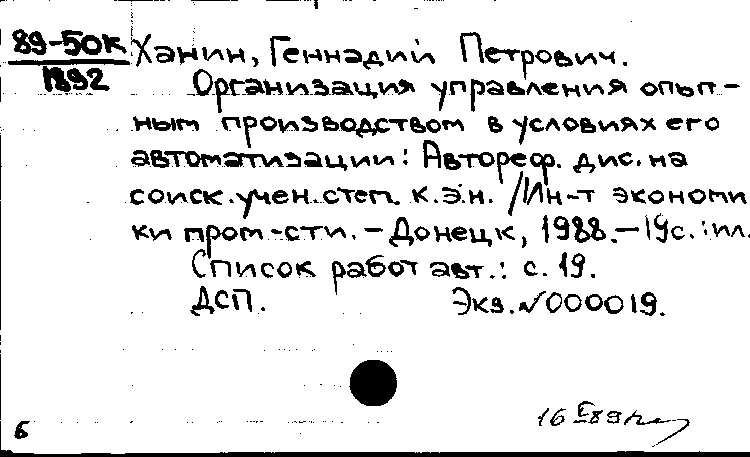 89-50к Ханин, Геннадий Петрович.
1892 Организация управления опыт-
ным производством в условиях его
автоматизации: Автореф. дис. на
соиск. учен. степ. к.э.н. /Ин-т экономи
ки пром-сти. – Донецк, 1988. – 19с.: ил.
Список работ авт.: с. 19.
ДСП. Экз. № 000019.
16 89
Б